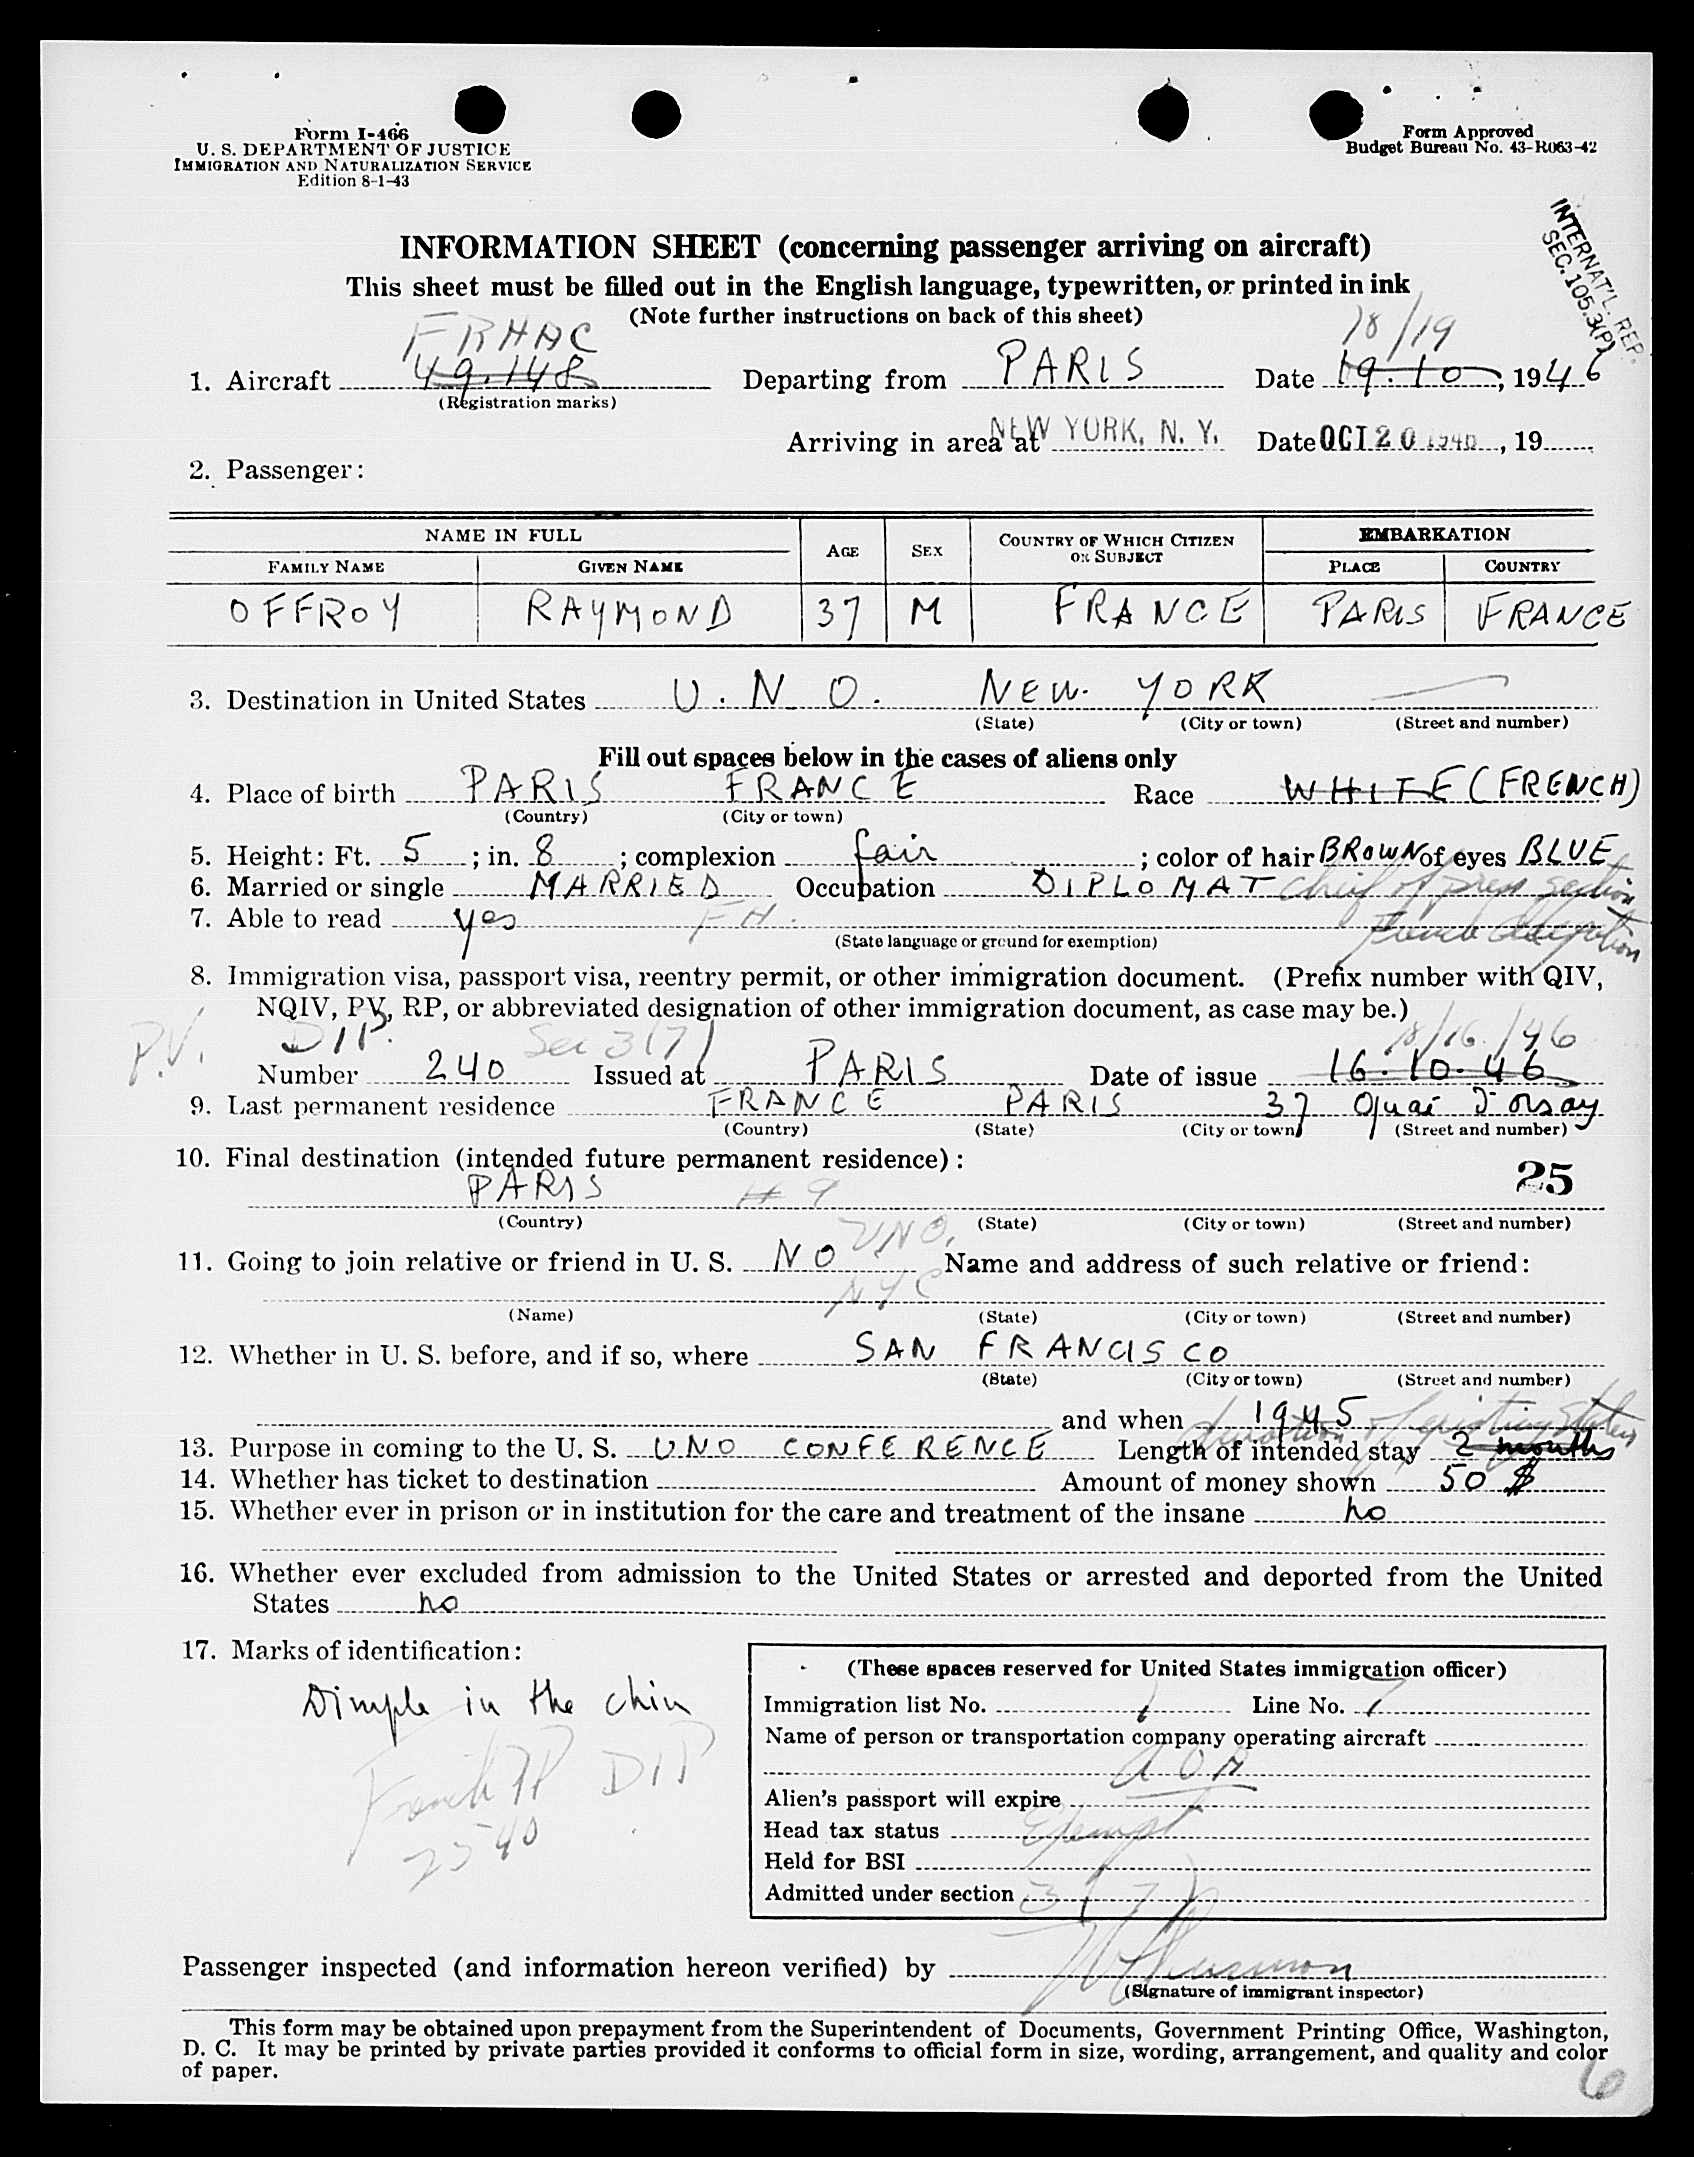 Form I-466
U. S. DEPARTMENT OF JUSTICE
IMMIGRATION AND NATURALIZATION SERVICE
Edition 8-1-43
Form Approved
Budget Bureau No. 43-R063-42
INTERNAT'L. REP.
SEC. 105.3(P)
INFORMATION SHEET (concerning passenger arriving on aircraft)
This sheet must be filled out in the English language, typewritten, or printed in ink
(Note further instructions on back of this sheet)
FRHAC 18/19
1. Aircraft 49.148 Departing from PARIS Date 19.10, 1946
(Registration marks)
Arriving in area at NEW YORK, N. Y. Date OCT 20 1946, 19
2. Passenger:
NAME IN FULL AGE SEX COUNTRY OF WHICH CITIZEN OR SUBJECT EMBARKATION
FAMILY NAME GIVEN NAME PLACE COUNTRY
OFFROY RAYMOND 37 M FRANCE PARIS FRANCE
3. Destination in United States U.N.O. NEW YORK
(State) (City or town) (Street and number)
Fill out spaces below in the cases of aliens only
4. Place of birth PARIS FRANCE Race WHITE (FRENCH)
(Country) (City or town)
5. Height: Ft. 5; in. 8; complexion fair; color of hair BROWN of eyes BLUE
6. Married or single MARRIED Occupation DIPLOMAT Cheif of press section
7. Able to read yes FH. French delegation
(State language or ground for exemption)
8. Immigration visa, passport visa, reentry permit, or other immigration document. (Prefix number with QIV,
NQIV, PV, RP, or abbreviated designation of other immigration document, as case may be.)
P.V. DIP. Sec 3(7) 10/16/46
Number 240 Issued at PARIS Date of issue 16.10.46
9. Last permanent residence FRANCE PARIS 37 Quai d'orsay
(Country) (State) (City or town) (Street and number)
10. Final destination (intended future permanent residence):
25
PARIS # 9
(Country) (State) (City or town) (Street and number)
UNO,
11. Going to join relative or friend in U. S. NO Name and address of such relative or friend:
NYC
(Name) (State) (City or town) (Street and number)
12. Whether in U. S. before, and if so, where SAN FRANCISCO
(State) (City or town) (Street and number)
and when 1945
duration of existing status
13. Purpose in coming to the U. S. UNO CONFERENCE Length of intended stay 2 months
14. Whether has ticket to destination Amount of money shown 50 $
15. Whether ever in prison or in institution for the care and treatment of the insane no
16. Whether ever excluded from admission to the United States or arrested and deported from the United
States no
17. Marks of identification:
Dimple in the chin
French PP DIP
2540
(These spaces reserved for United States immigration officer)
Immigration list No. 1 Line No. 7
Name of person or transportation company operating aircraft
AOA
Alien's passport will expire
Head tax status Exempt
Held for BSI
Admitted under section 3(7)
Passenger inspected (and information hereon verified) by
(Signature of immigrant inspector)
This form may be obtained upon prepayment from the Superintendent of Documents, Government Printing Office, Washington,
D. C. It may be printed by private parties provided it conforms to official form in size, wording, arrangement, and quality and color
of paper.
6